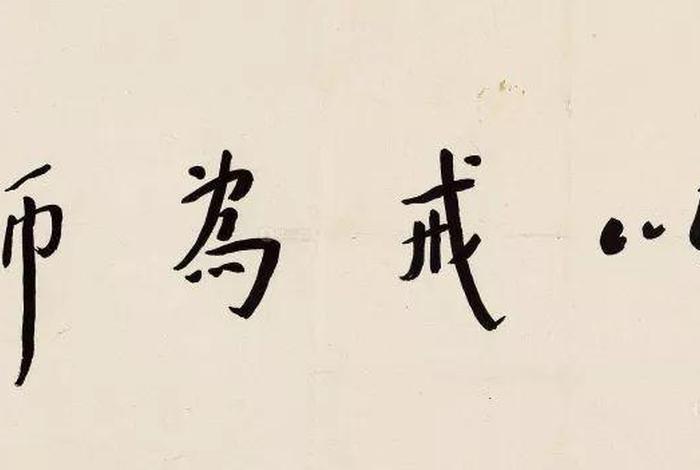 以戒為師